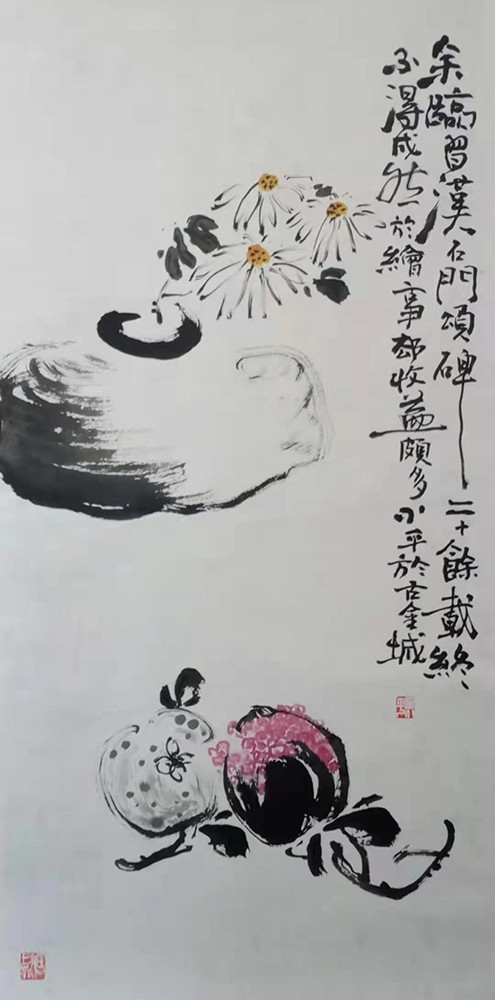 余臨習漢石門頌碑二十餘載終
不得成然於繪事却收益頗多小平於古金城